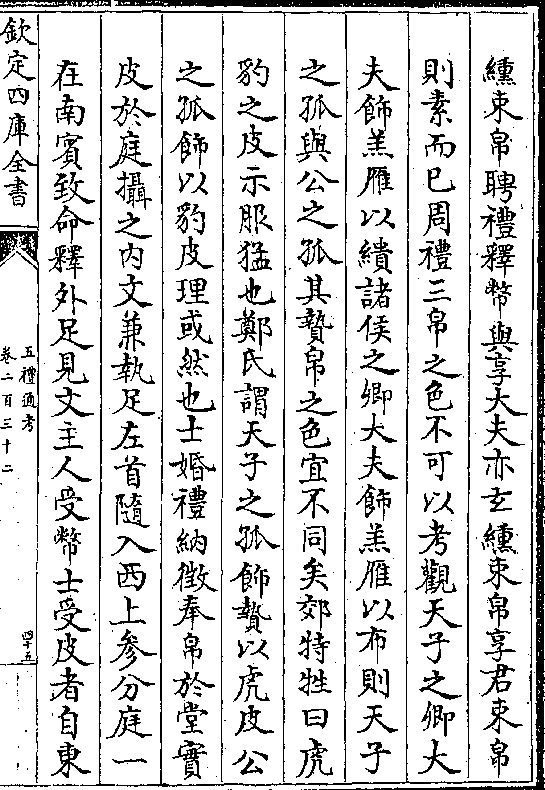 纁束帛聘禮釋幣與享大夫亦玄纁束帛享君束帛
則素而已周禮三帛之色不可以考觀天子之卿大
夫飾羔雁以繢諸侯之卿大夫飾羔雁以布則天子
之孤與公之孤其贄帛之色宜不同矣郊特牲曰虎
豹之皮示服猛也鄭氏謂天子之孤飾贄以虎皮公
之孤飾以豹皮理或然也士婚禮納徵奉帛於堂實
皮於庭攝之内文兼執足左首隨入西上參分庭一
在南賓致命釋外足見文主人受幣士受皮者自東
欽定四庫全書
五禮通考
卷二百三十二
四十五